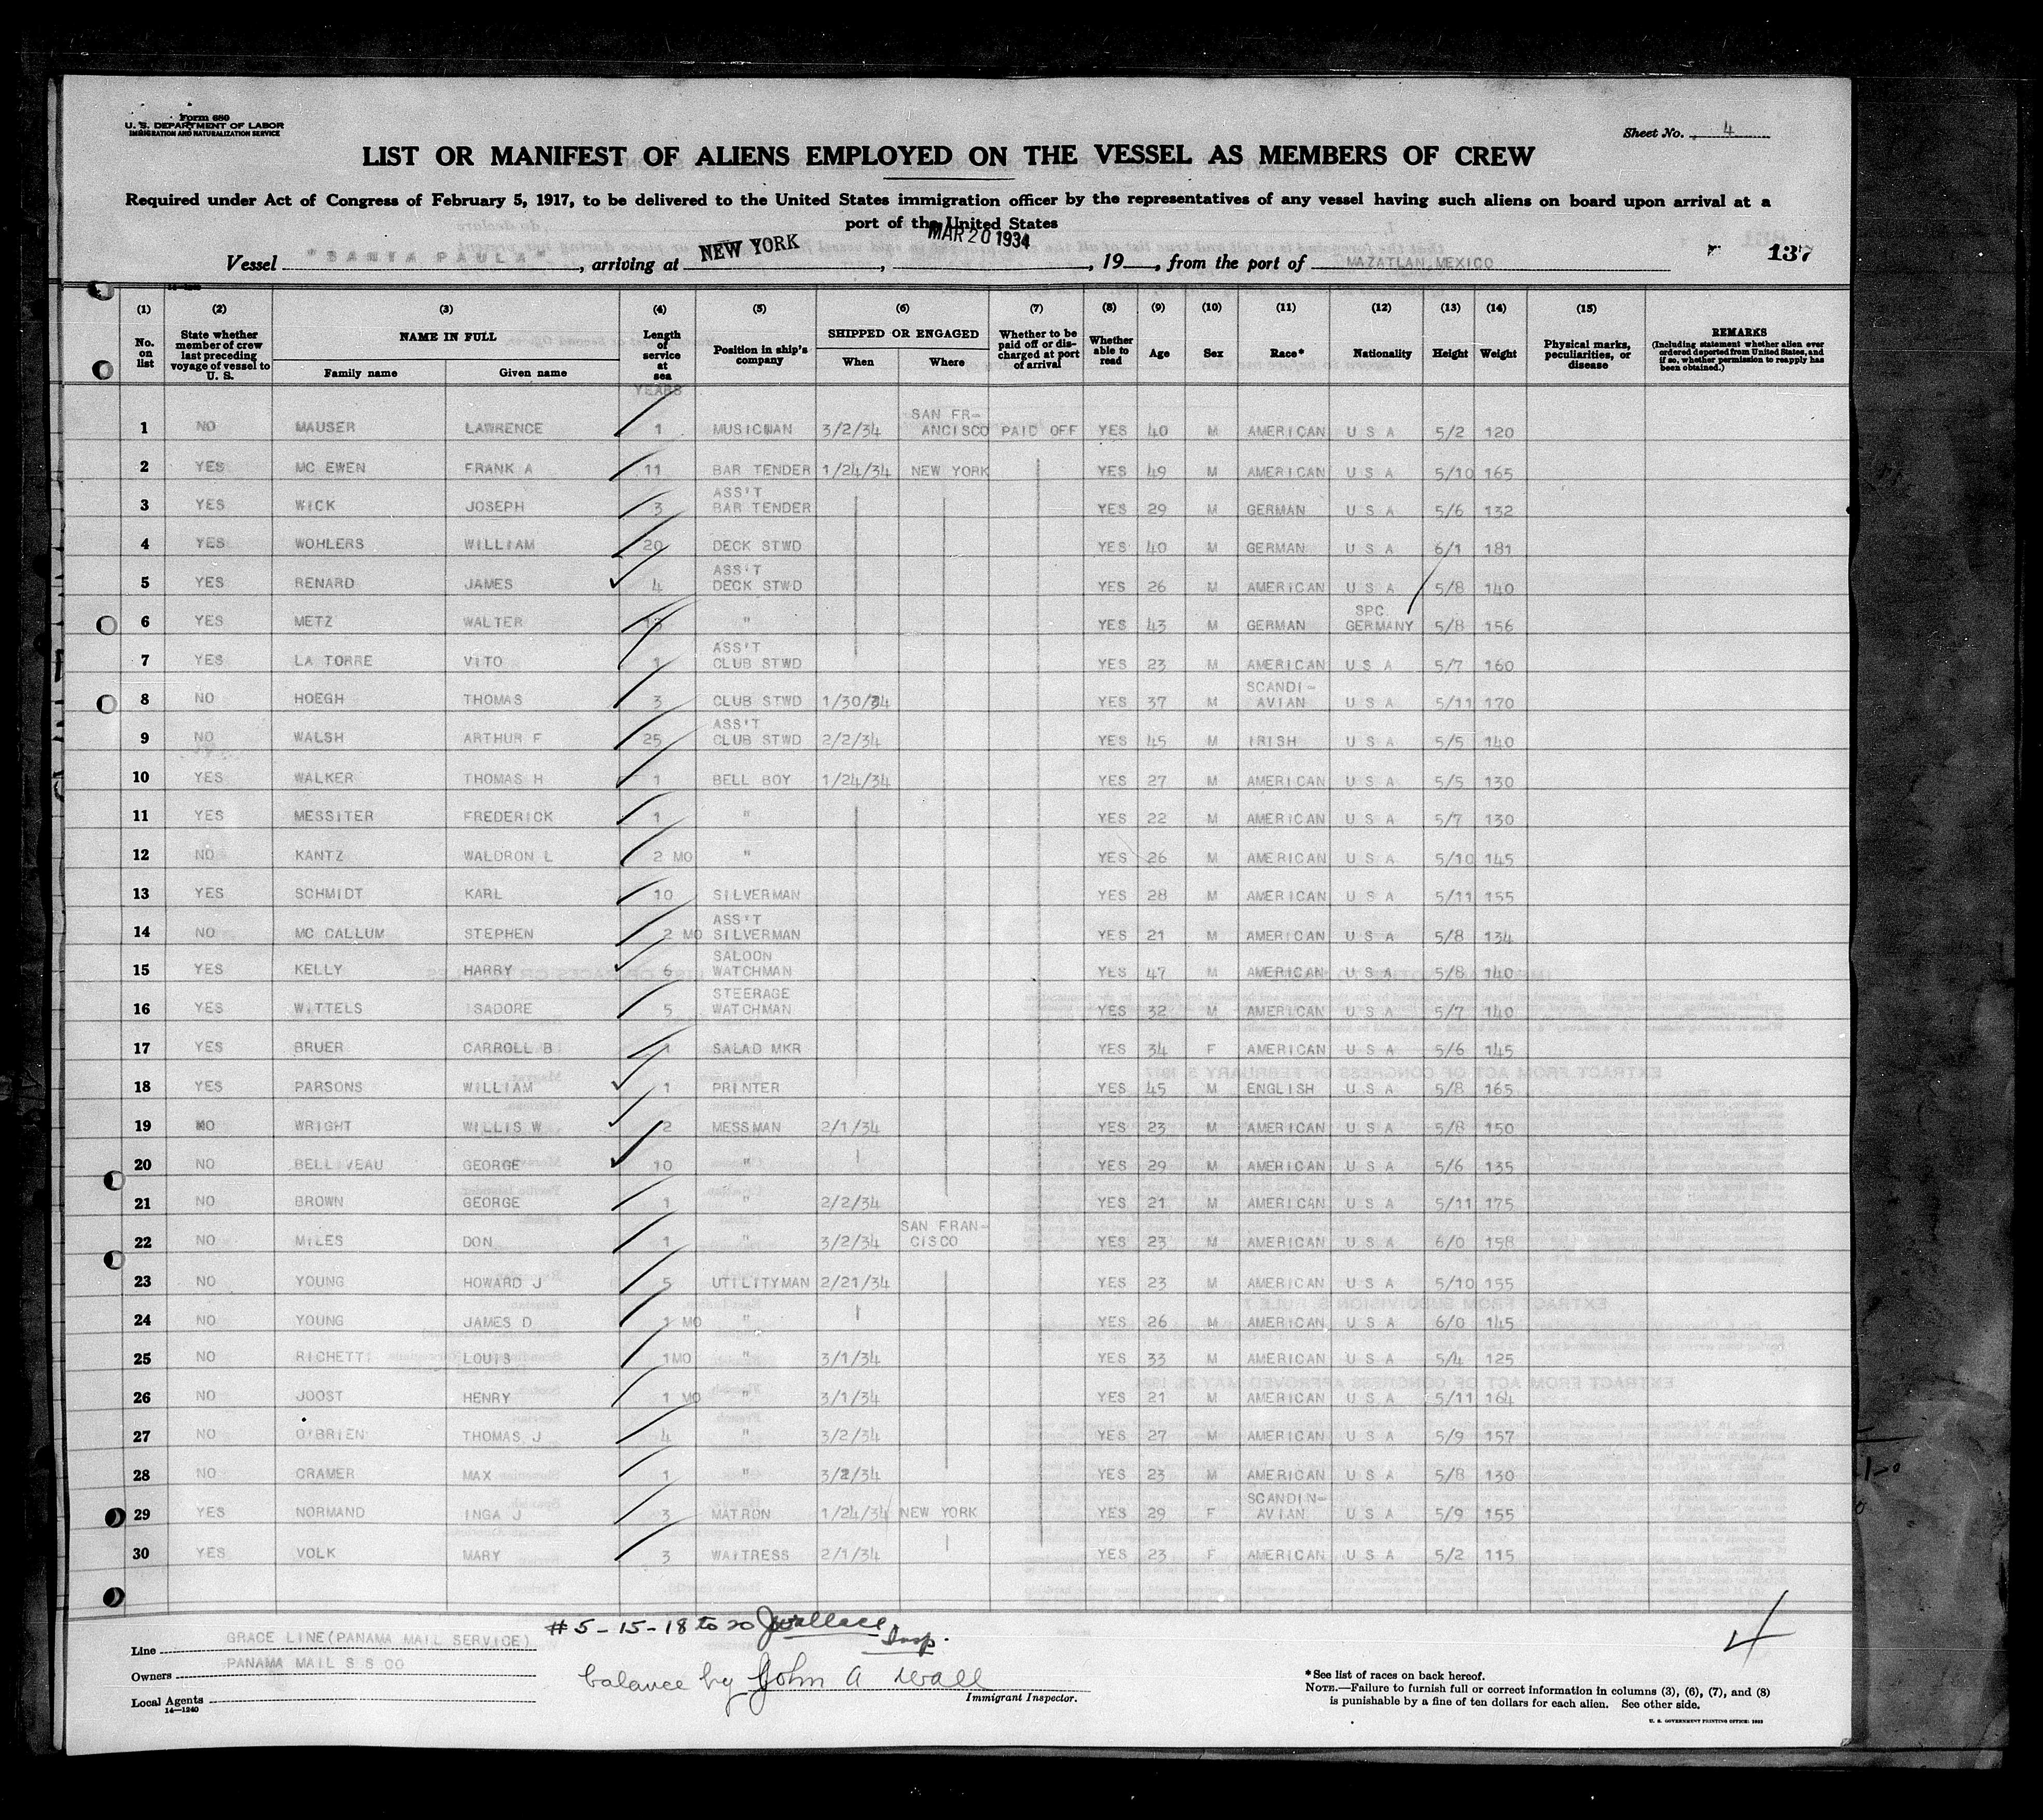 Form 680
U. S. DEPARTMENT OF LABOR
IMMIGRATION AND NATURALIZATION SERVICE
Sheet No. 4
LIST OR MANIFEST OF ALIENS EMPLOYED ON THE VESSEL AS MEMBERS OF CREW
Required under Act of Congress of February 5, 1917, to be delivered to the United States immigration officer by the representatives of any vessel having such aliens on board upon arrival at a
port of the United States
Vessel "SANTA PAULA", arriving at NEW YORK, MAR 20 1934, 19__, from the port of MAZATLAN, MEXICO 137
(1) (2) (3) (4) (5) (6) (7) (8) (9) (10) (11) (12) (13) (14) (15)
No. on list State whether member of crew last preceding voyage of vessel to U. S. NAME IN FULL Family name Given name Length of service at sea Position in ship's company SHIPPED OR ENGAGED When Where Whether to be paid off or discharged at port of arrival Whether able to read Age Sex Race* Nationality Height Weight Physical marks, peculiarities, or disease REMARKS (Including statement whether alien ever ordered deported from United States, and if so, whether permission to reapply has been obtained.)
YEARS
1 NO MAUSER LAWRENCE 1 MUSICIAN 3/2/34 SAN FR-ANCISCO PAID OFF YES 40 M AMERICAN U S A 5/2 120
2 YES MC EWEN FRANK A 11 BAR TENDER 1/24/34 NEW YORK YES 49 M AMERICAN U S A 5/10 165
3 YES WICK JOSEPH 3 ASS'T BAR TENDER YES 29 M GERMAN U S A 5/6 132
4 YES WOHLERS WILLIAM 20 DECK STWD YES 40 M GERMAN U S A 6/1 181
5 YES RENARD JAMES 4 ASS'T DECK STWD YES 26 M AMERICAN U S A 5/8 140
6 YES METZ WALTER " YES 43 M GERMAN SPC. GERMANY 5/8 156
7 YES LA TORRE VITO 1 ASS'T CLUB STWD YES 23 M AMERICAN U S A 5/7 160
8 NO HOEGH THOMAS 3 CLUB STWD 1/30/34 YES 37 M SCANDI-AVIAN U S A 5/11 170
9 NO WALSH ARTHUR F 25 ASS'T CLUB STWD 2/2/34 YES 45 M IRISH U S A 5/5 140
10 YES WALKER THOMAS H 1 BELL BOY 1/24/34 YES 27 M AMERICAN U S A 5/5 130
11 YES MESSITER FREDERICK 1 " YES 22 M AMERICAN U S A 5/7 130
12 NO KANTZ WALDRON L 2 MO " YES 26 M AMERICAN U S A 5/10 145
13 YES SCHMIDT KARL 10 SILVERMAN YES 28 M AMERICAN U S A 5/11 155
14 NO MC CALLUM STEPHEN 2 MO ASS'T SILVERMAN YES 21 M AMERICAN U S A 5/8 134
15 YES KELLY HARRY 6 SALOON WATCHMAN YES 47 M AMERICAN U S A 5/8 140
16 YES WITTELS ISADORE 5 STEERAGE WATCHMAN YES 32 M AMERICAN U S A 5/7 140
17 YES BRUER CARROLL B 1 SALAD MKR YES 34 F AMERICAN U S A 5/6 145
18 YES PARSONS WILLIAM 1 PRINTER YES 45 M ENGLISH U S A 5/8 165
19 NO WRIGHT WILLIS W 2 MESSMAN 2/1/34 YES 23 M AMERICAN U S A 5/8 150
20 NO BELLIVEAU GEORGE 10 " YES 29 M AMERICAN U S A 5/6 135
21 NO BROWN GEORGE 1 " 2/2/34 YES 21 M AMERICAN U S A 5/11 175
22 NO MILES DON 1 " 3/2/34 SAN FRAN-CISCO YES 23 M AMERICAN U S A 6/0 158
23 NO YOUNG HOWARD J 5 UTILITYMAN 2/21/34 YES 23 M AMERICAN U S A 5/10 155
24 NO YOUNG JAMES D 1 MO " YES 26 M AMERICAN U S A 6/0 145
25 NO RICHETTI LOUIS 1MO " 3/1/34 YES 33 M AMERICAN U S A 5/4 125
26 NO JOOST HENRY 1 MO " 3/1/34 YES 21 M AMERICAN U S A 5/11 164
27 NO O'BRIEN THOMAS J 4 " 3/2/34 YES 27 M AMERICAN U S A 5/9 157
28 NO CRAMER MAX 1 " 3/2/34 YES 23 M AMERICAN U S A 5/8 130
29 YES NORMAND INGA J 3 MATRON 1/24/34 NEW YORK YES 29 F SCANDIN-AVIAN U S A 5/9 155
30 YES VOLK MARY 3 WAITRESS 2/1/34 YES 23 F AMERICAN U S A 5/2 115
# 5-15-18 to 20 JWallace Insp.
4
Line GRACE LINE(PANAMA MAIL SERVICE)
Owners PANAMA MAIL S S CO
Local Agents
14—1240
balance by John A Wall
Immigrant Inspector.
*See list of races on back hereof.
NOTE.—Failure to furnish full or correct information in columns (3), (6), (7), and (8)
is punishable by a fine of ten dollars for each alien. See other side.
U. S. GOVERNMENT PRINTING OFFICE: 1933